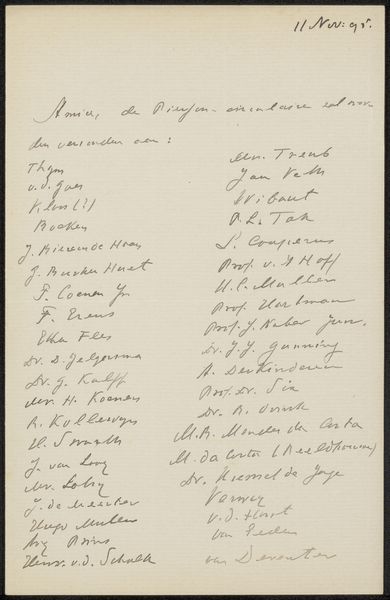 11 Nov. 95.
Amice, de Pierson-circulaire zal wor-
den verzonden aan:
Thym
v.d. Goes
Kloos (?)
Boeken
J. Bierens de Haan
J. Busken Huet
F. Coenen Jr
F. Erens
Etha Fles
Dr. D. Jelgersma
Dr. G. Kalff
Mr. H. Koenen
R. Kollewyn
H. Smissaert
J. van Looy
Mr. Lohy
J. de Meester
Hugo Muller
Ary Prins
Henr. v.d. Schalk
Mr. Treub
Jan Veth
Wibaut
P.L. Tak
L. Couperus
Prof. v. 't Hoff
H.P. Muller
Prof. Hartman
Prof. J. Naber Jun.
Dr. J.J. Gunning
A. Derkinderen
Prof. Dr. Six
Dr. A.
M.B. Mendes da Costa
M. da Costa (Beeldhouwer)
Dr. Hiemel de Jage
Verwey
v.d. Horst
van Eeden
van Deventer